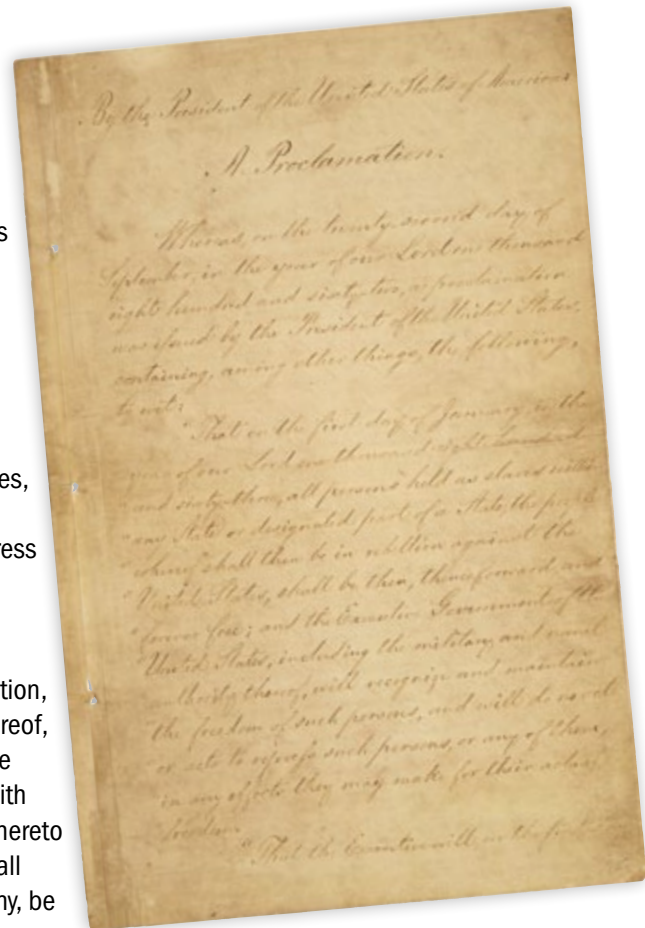 s
es,
ress
tion,
reof,
e
ith
hereto
all
ny, be
By the President of the United States of America:
A Proclamation.
Whereas, on the twenty-second day of
September, in the year of our Lord one thousand
eight hundred and sixty-two, a proclamation
was issued by the President of the United States,
containing, among other things, the following,
to wit:
"That on the first day of January, in the
"year of our Lord one thousand eight hundred
"and sixty-three, all persons held as slaves within
"any State or designated part of a State, the people
"whereof shall then be in rebellion against the
"United States, shall be then, thenceforward, and
"forever free; and the Executive Government of the
"United States, including the military and naval
"authority thereof, will recognize and maintain
"the freedom of such persons, and will do no act
"or acts to repress such persons, or any of them,
"in any efforts they may make for their actual
"freedom.
"That the Executive will, on the first